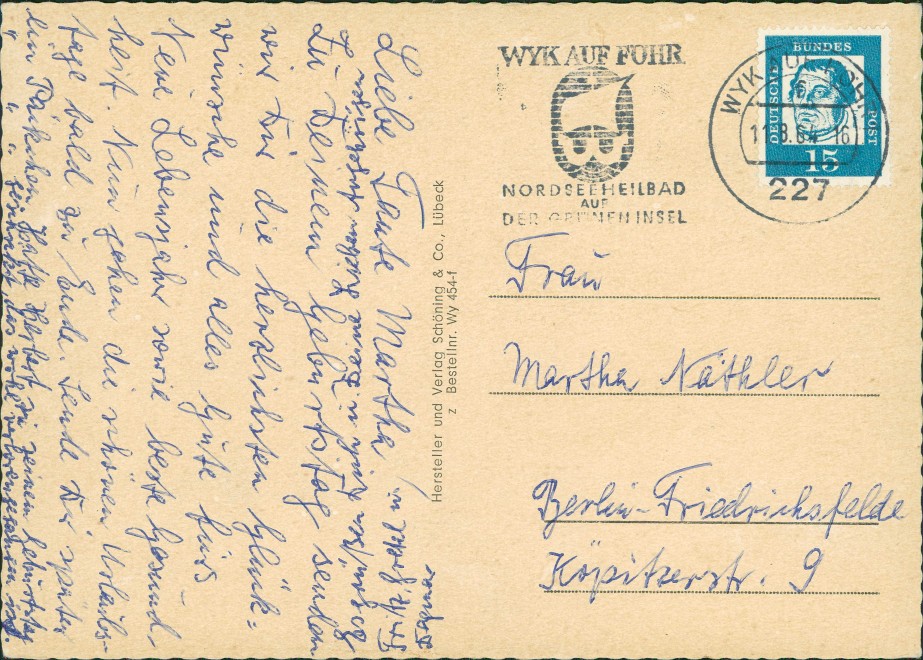 Liebe Tante Martha,
Zu Deinem Geburtstag senden
wir Dir die herzlichsten Glück-
wünsche und alles Gute fürs
Neue Lebensjahr sowie beste Gesund-
heit. Nun gehen die schönen Urlaubs-
tage bald zu Ende. Sende Dir später
ein Päckchen. Hatte Herbert zu seinem Geburtstag
Hersteller und Verlag Schöning & Co., Lübeck
z Bestellnr. Wy 454-f
WYK AUF FÖHR
NORDSEEHEILBAD
AUF
DER GRÜNEN INSEL
WYK AUF FÖHR
227
DEUTSCHE BUNDES POST
15
Frau
Martha Näthler
Berlin-Friedrichsfelde
Köpitzerstr. 9